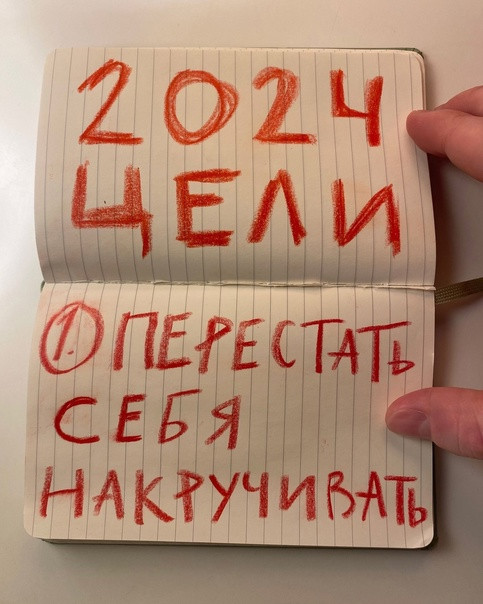 2024
ЦЕЛИ
1. ПЕРЕСТАТЬ
СЕБЯ
НАКРУЧИВАТЬ